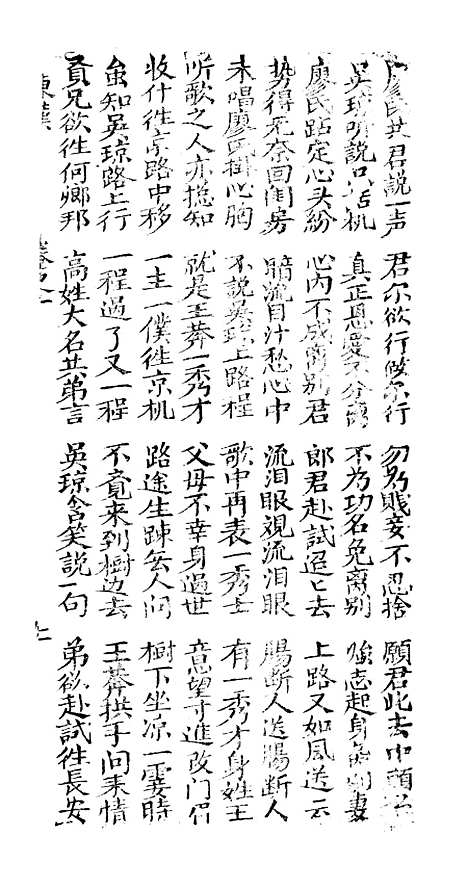 氏共君說一声 君尔欲行候尔行 勿为贱妾不忍捨 願君此去中頭
吴琼听説 真正恩愛不分离 不为功名免离别 強志起身無別妻
廖氏踮定心头紛 心内不成離别君 郎君赴試迢匕去 上路又如風送云
势得无奈回閨房 暗流目汁愁心中 流泪眼視流泪眼 腸断人送腸断人
未唱廖氏掛心胸 不說吴琼上路程 歌中再表一秀士 有一秀才身姓王
听歌之人亦捴知 就是王莽一秀才 父母不幸身過世 意望寸進改門
收什往京路中移 一主一僕往京机 路途生踈無人问 樹下坐凉一霎時
虽知吴琼路上行 一程過了又一程 不竟来到樹边去 王莽拱手问来情
賢兄欲往何鄉邦 高姓大名共弟言 吴琼含笑説一句 弟欲赴試往長安
東漢 卷之一